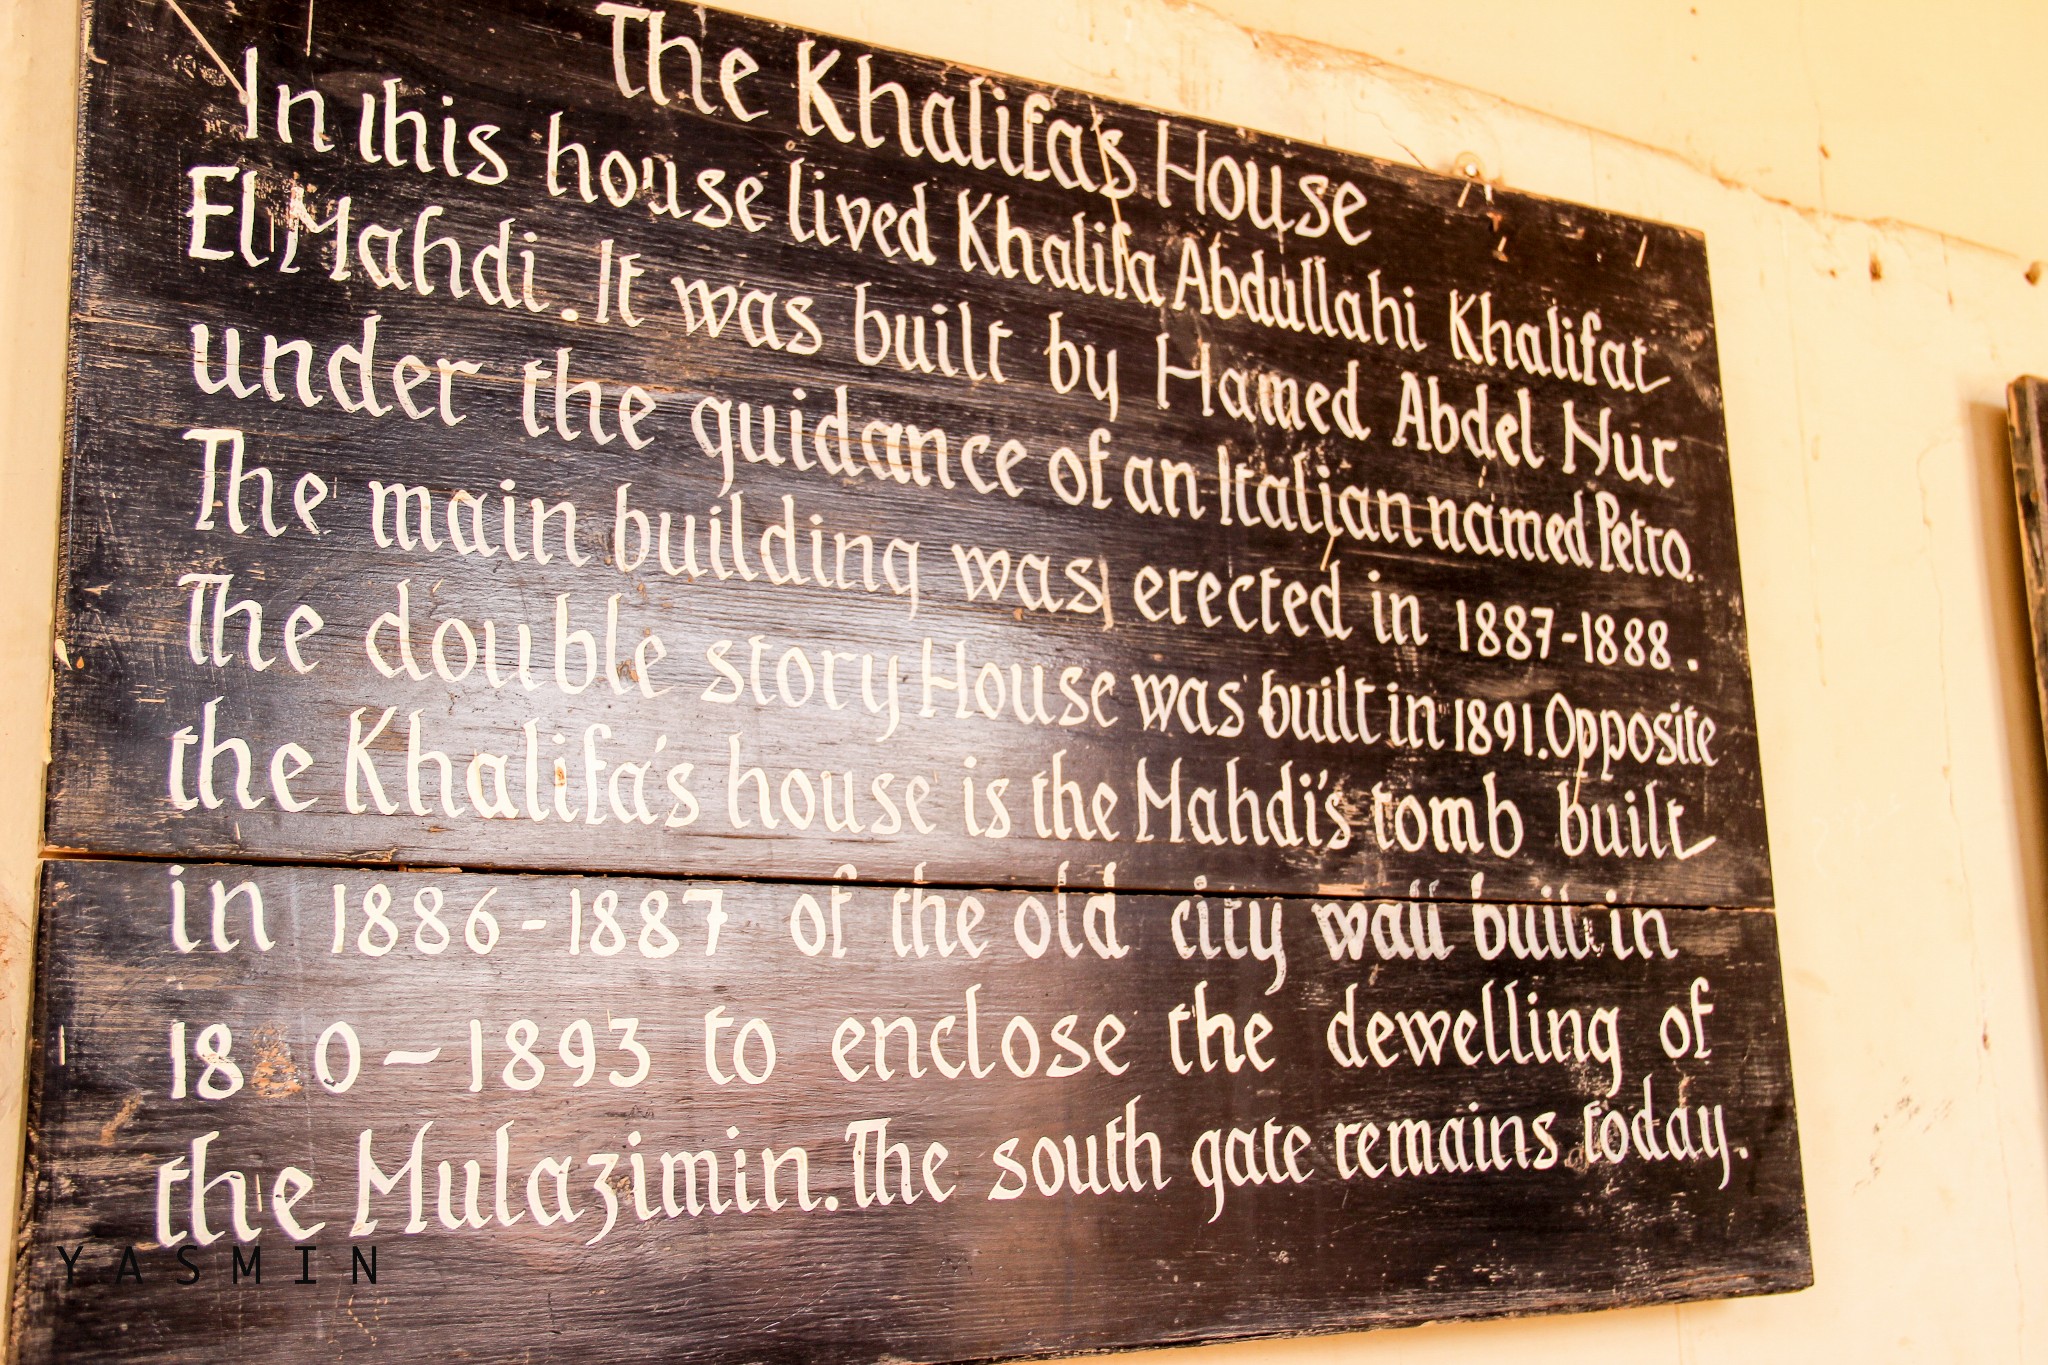 The Khalifa's House
In this house lived Khalifa Abdullahi Khalifat
El Mahdi. It was built by Hamed Abdel Nur
under the guidance of an Italian named Petro.
The main building was erected in 1887-1888.
The double story House was built in 1891. Opposite
the Khalifa's house is the Mahdi's tomb built
in 1886-1887 of the old city wall built in
18 0-1893 to enclose the dewelling of
the Mulazimin. The south gate remains today.
YASMIN